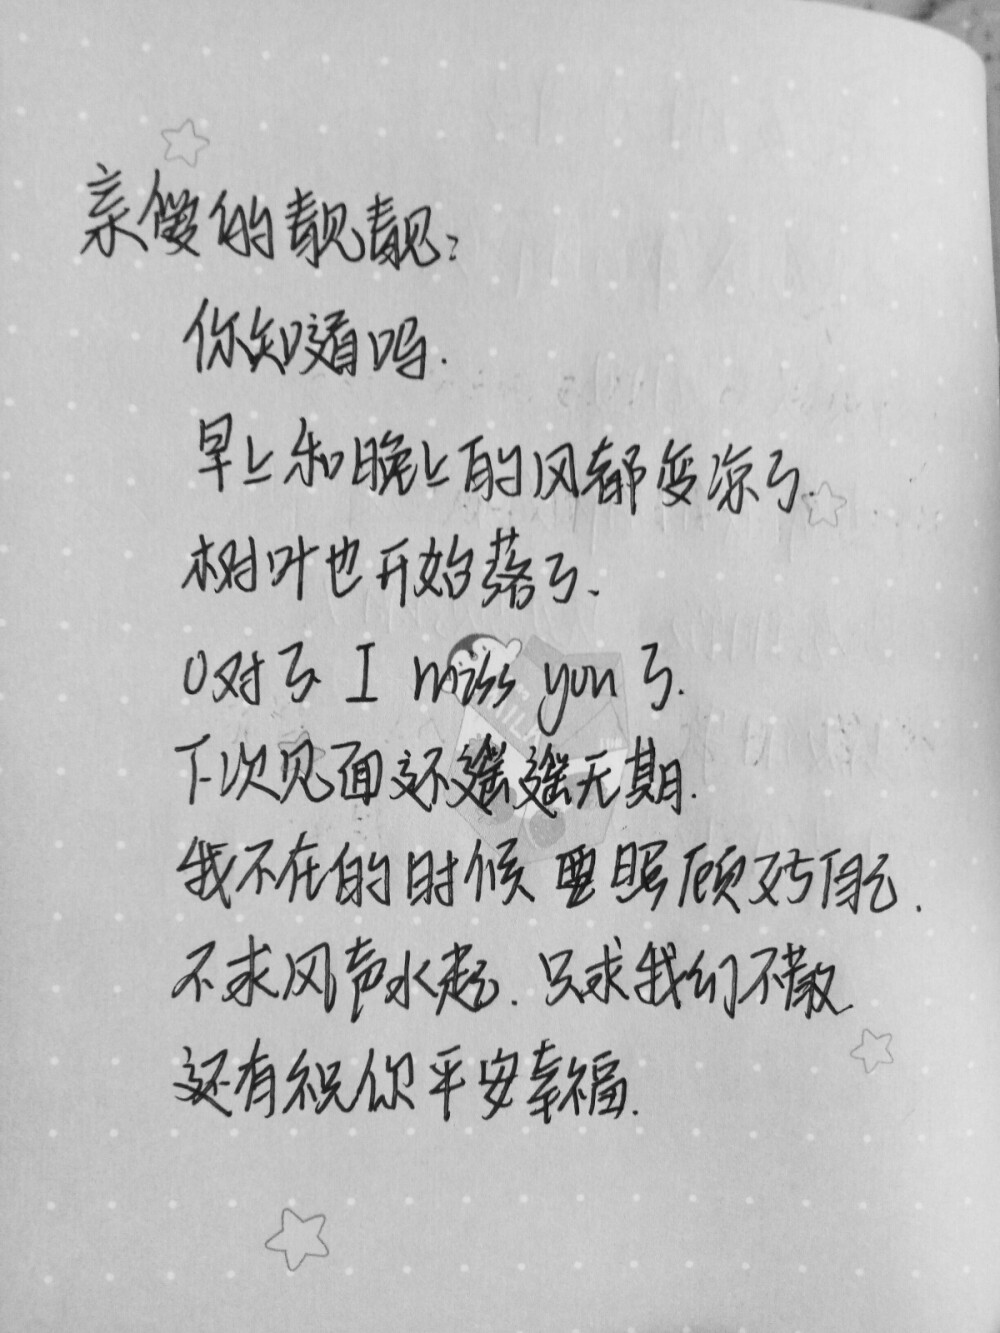 亲爱的靓靓:
你知道吗.
早上和晚上的风都变凉了.
树叶也开始落了.
O对了 I miss you 了.
下次见面还遥遥无期.
我不在的时候要照顾好自己.
不求风声水起.只求我们不散
还有祝你平安幸福.